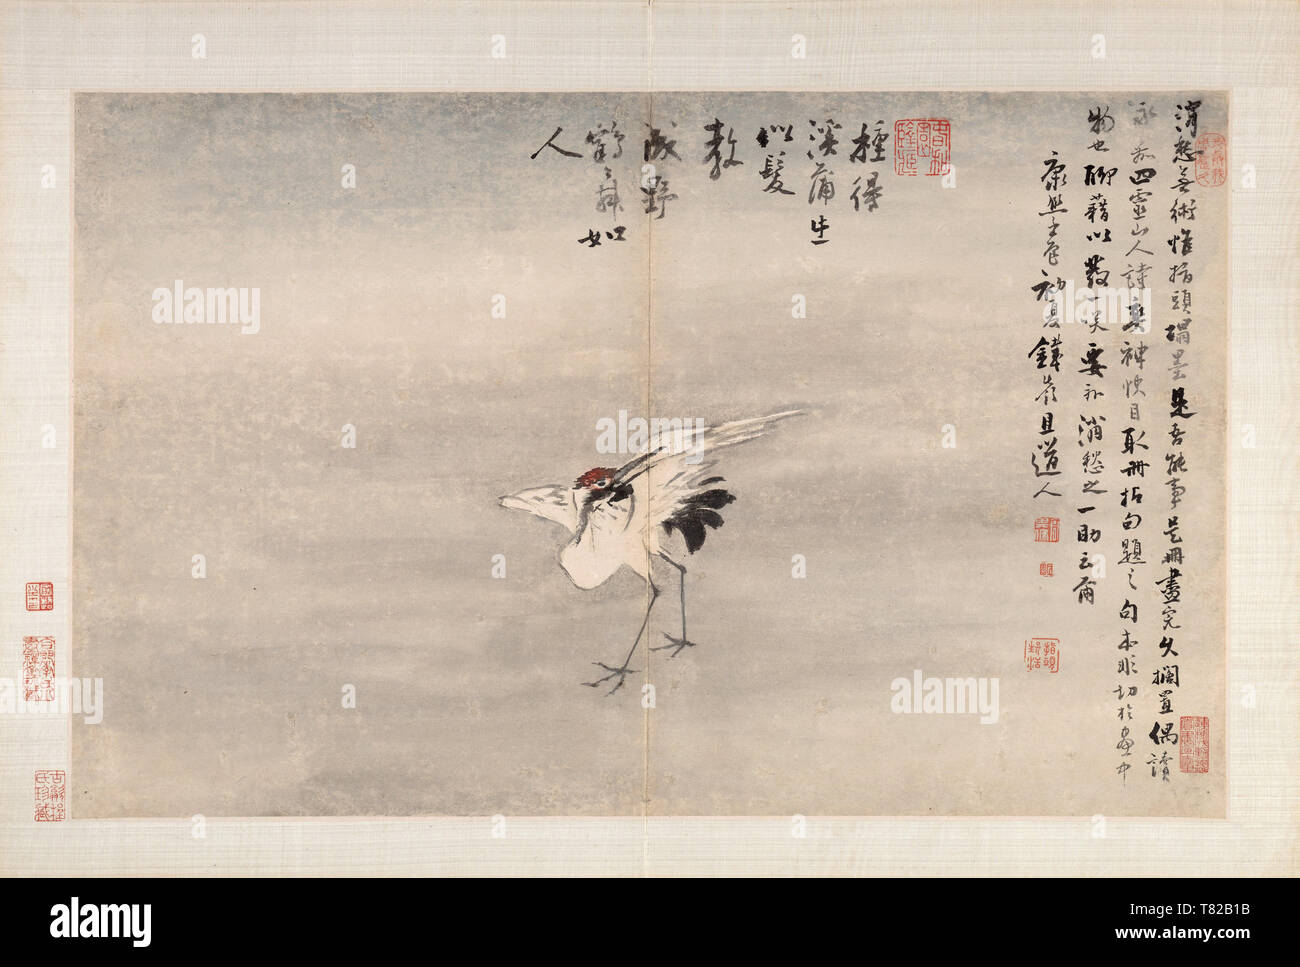 消愁無術惟指頭磵墨是吾能事是冊畫完久擱置偶讀
永嘉四靈山人詩爽神快目取冊拈句題之句本非切於畫中
物也聊藉以發一笑要亦消愁之一助云爾
康熙壬辰初夏鐵嶺且道人
種得
溪蒲生
似髮
教
成野
鶴舞如
人
alamy
Image ID: T82B1B
www.alamy.com